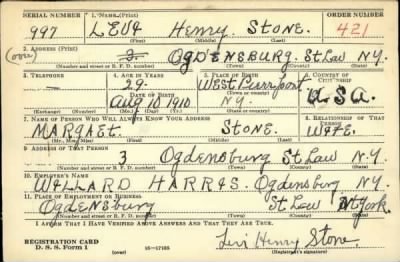 SERIAL NUMBER 1. NAME (Print) ORDER NUMBER
997 LEVI Henry. STONE. 421
(First) (Middle) (Last)
2. ADDRESS (Print)
(over) 3. OGDENSBURG. St Law N.Y.
(Number and street or R. F. D. number) (Town) (County) (State)
3. TELEPHONE 4. AGE IN YEARS 5. PLACE OF BIRTH 6. COUNTRY OF CITIZENSHIP
— 29. West
DATE OF BIRTH (Town or county)
Aug 10 1910 N.Y. U.S.A.
(Exchange) (Number) (Mo.) (Day) (Yr.) (State or country)
7. NAME OF PERSON WHO WILL ALWAYS KNOW YOUR ADDRESS 8. RELATIONSHIP OF THAT PERSON
STONE. WIFE.
(Mr., Mrs., Miss) (First) (Middle) (Last)
9. ADDRESS OF THAT PERSON
3 Ogdensburg St Law N.Y.
(Number and street or R. F. D. number) (Town) (County) (State)
10. EMPLOYER'S NAME
WILLARD HARRIS. Ogdensburg N.Y.
11. PLACE OF EMPLOYMENT OR BUSINESS
OGDENSBURG St Law
(Number and street or R. F. D. number) (Town) (County) (State)
I AFFIRM THAT I HAVE VERIFIED ABOVE ANSWERS AND THAT THEY ARE TRUE.
REGISTRATION CARD
D. S. S. Form 1 (over) 16—17105 Levi Henry Stone.
(Registrant's signature)